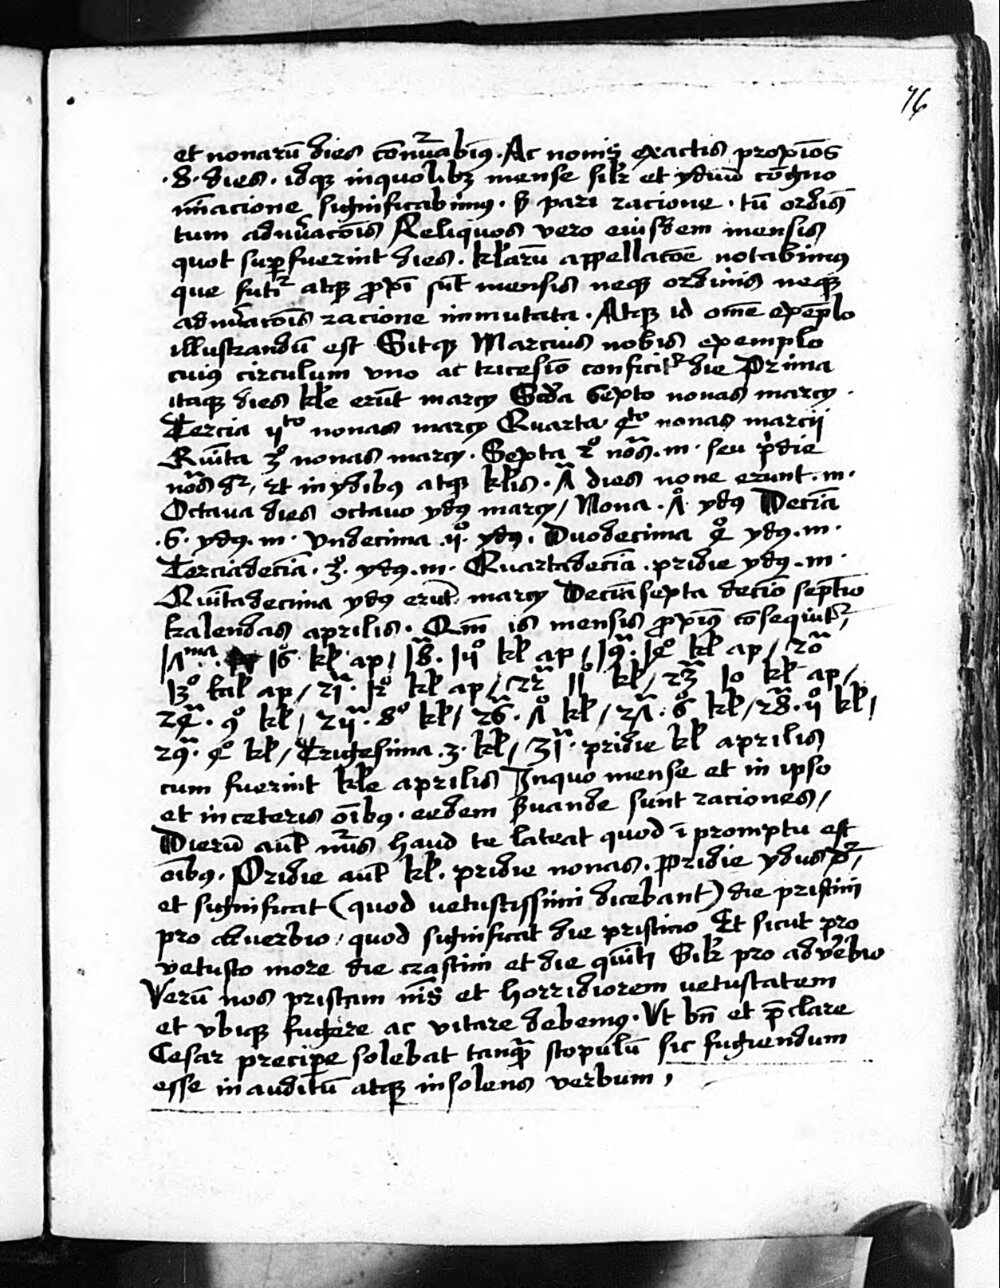 76
et nonarū dies cōnūabim9. Ac nonis exactis propīos
.8. dies. idq3 inquolib3 mense silr et yduū cōgno
mīacione significabim9. S3 pari racione. tū ordīs
tum adnūacōis Reliquos vero eiusdem mensis
quot sup̱fuerint dies. klarū appellacōe notabimus
que futi atq3 p̱xi sūt mensis neq3 ordinis neq3
adnūacōis racione immutata. Atq3 id om̄e exēplo
illustrandū est Sitq3 Marcius nobis exemplo
cuius circulum vno ac tricesīo conficitr die Prima
itaq3 dies kle erūt marcy Scda Sexto nonas marcy.
Tercia 5to nonas marcy Quarta 4to nonas marcii
Quīta 3o nonas marcy. Sexta 2o nōs. m. seu p̄die
nōas dr, ut in ydibus atq3 klis. 7a dies none erunt. m.
Octaua dies octauo ydus marcy/ Nona. 7o ydus Decīa
.6. ydus. m. Vndecima 5o ydus. Duodecima 4o ydus. m.
Terciadecīa. 3o. ydus. m. Quartadecīa. pridie ydus. m.
Quītadecima ydus erūt marcy Decīasexta decīo septīo
kalendas aprilis. Qm̄ is mensis p̱xius cōsequitr,
17ma. 16 kl ap/ 18. 15o kl ap/ 19a. 14o kl ap/ 20a
13o kal ap/ 21a. 12o kl ap/ 22a 11 kl/ 23a 10 kl ap/
24a. 9o kl/ 25a. 8o kl/ 26a. 7o kl/ 27a. 6o kl/ 28a. 5o kl/
29a. 4o kl/ Trigesima. 3. kl/ 31a. pridie kl aprilis
cum fuerint kle aprilis Inquo mense et in ipso
et in ceteris oībus. eedem s̱uande sunt raciones/
Dierū aūt nūs haud te lateat quod ī promptu est
oībus. Pridie aūt kl. pridie nonas. Pridie ydus dr,
et significat (quod uetustissimi dicebant) die pristini
pro aduerbio, quod significat die pristino Et sicut pro
vetusto more die crastini et die quīti Silr pro aduerbio
Verū nos pristam nīs et horridiorem uetustatem
et vbiq3 fugere ac vitare debemus. Vt bn̄ et p̄clare
Cesar precipe solebat tanq̄ scopulū sic fugiendum
esse inauditū atq3 insolens verbum,